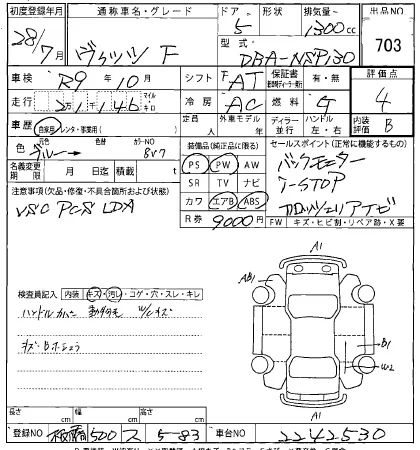 初度登録年月 通称車名・グレード ドア 形状 排気量 出品No
28/7月 ヴィッツ F 5 1300cc 703
型式 DBA-NSP130
車検 R9年10月 シフト FAT 保証書 有・無 評価点
走行 2万1千146 マイル キロ 冷房 AC 燃料 G 4
車歴 自家用 レンタ・事業用( ) 定員 人 外車モデル 年 ディーラー 並行 ハンドル 左・右 内装 B
色 ブルー カラーNO 8V7 装備品(純正品に限る) セールスポイント(正常に機能するもの)
名義変更期限 月 日迄 積載 t PS PW AW バックモニター
注意事項(欠品・修復・不具合箇所および状態) SR TV ナビ I-STOP
VSC PCS LDA カワ エアB ABS カロッツェリアナビ
R券 9000円 FW キズ・ヒビ割・リペア跡・X要
A1
検査員記入 内装 キズ・汚レ・コゲ・穴・スレ・キレ AB1
ハンドルカバー
B1
W2
A1
長さ cm 幅 cm 高さ cm
登録NO 板橋 500 ス 5-83 車台NO 2242530